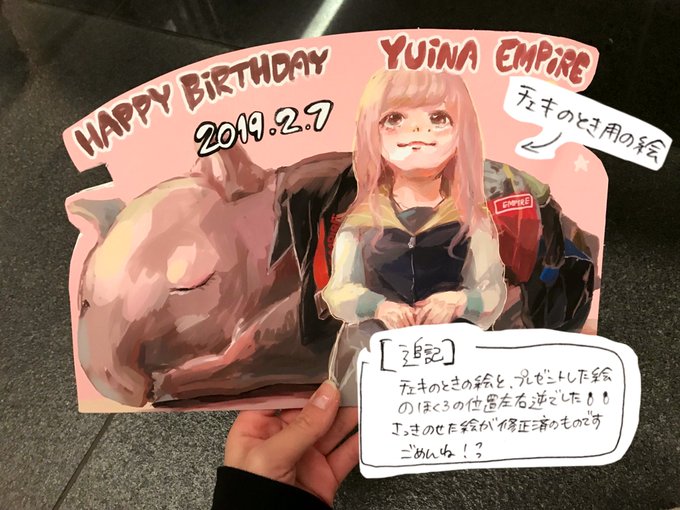 HAPPY BIRTHDAY YUiNA EMPiRE
2019.2.7
チェキのとき用の絵
EMPIRE
[追記]
チェキのときの絵と、プレゼントした絵
のほくろの位置左右逆でした!!
さっきのせた絵が修正済のものです
ごめんね!